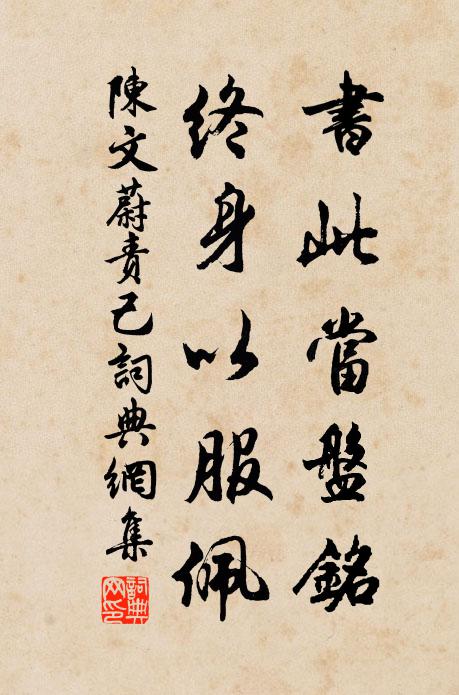 書此當盤銘
終身以服佩
陳文蔚責己詞典網集
詞典網印